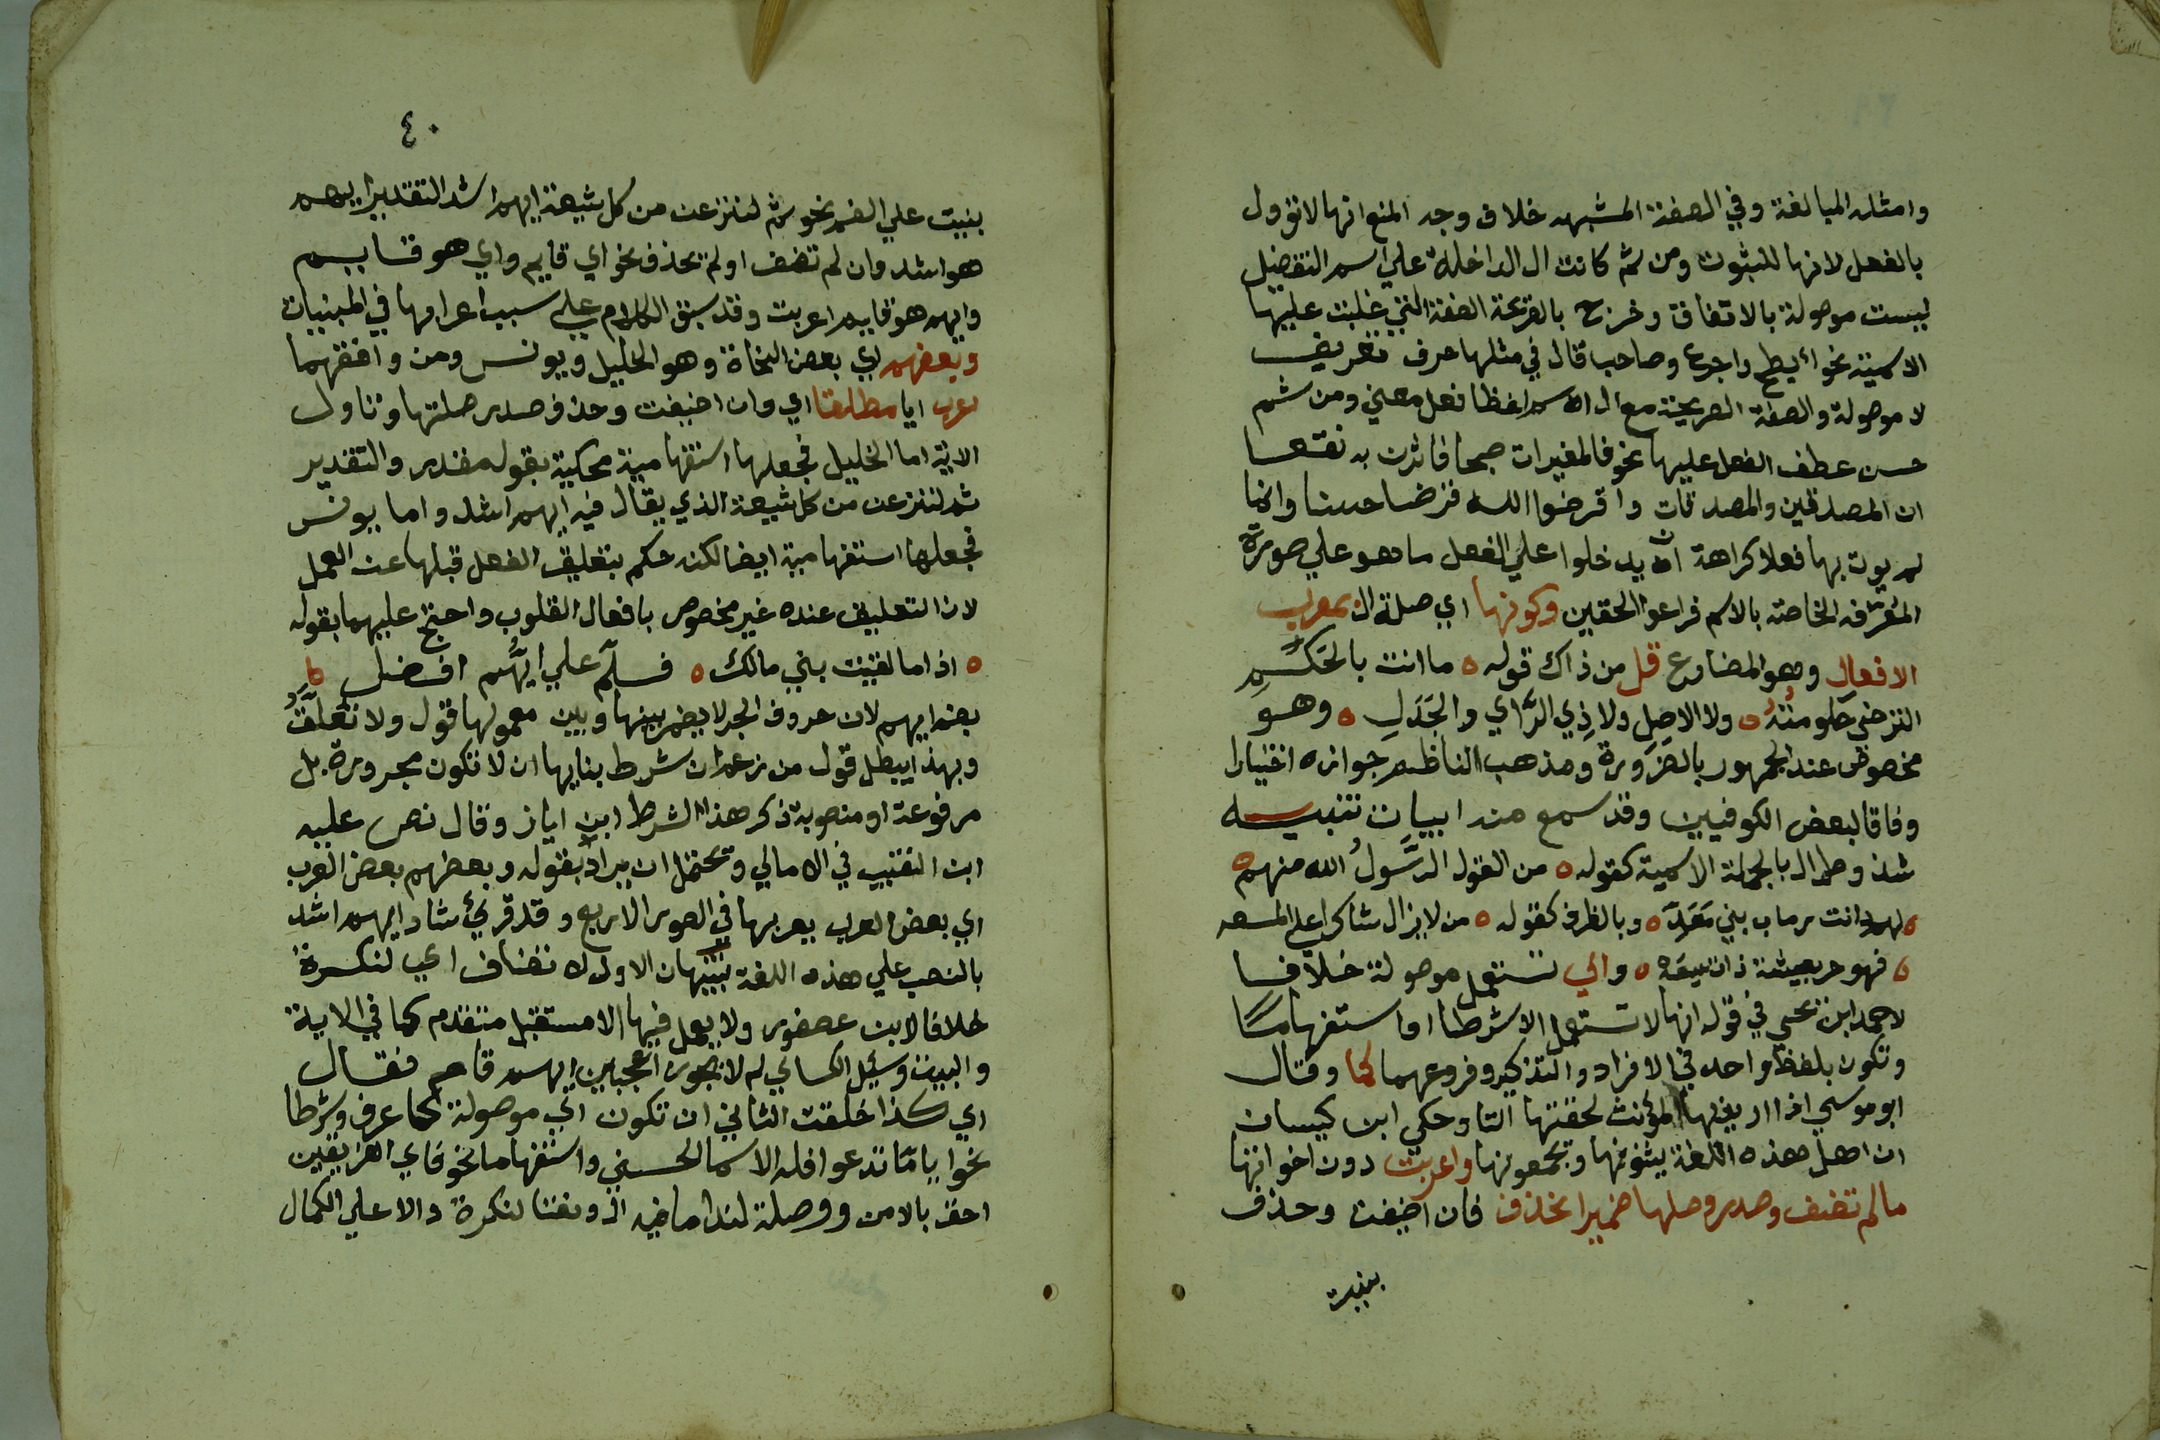 وامثله المبالغة وفي الصفة المشبهه خلاف وجه المنع انها لاتؤول
بالفعل لانها للثبوت ومن ثم كانت ال الداخلة علي اسم التفضيل
ليست موصولة بالاتفاق وخرج بالصريحة الصفة التي غلبت عليها
الاسمية نحو ابطح واجرع وصاحب قال في مثلها حرف تعريف
لا موصولة والصفة الصريحة مع ال اسم لفظا فعل معني ومن ثم
حسن عطف الفعل عليها نحو فالمغيرات صبحا فاثرن به نقعا
ان المصدقين والمصدقات واقرضوا الله قرضا حسنا وانما
لم يوت بها فعلا كراهة ان يدخلوا علي الفعل ما هو علي صورة
المعرفه الخاصة بالاسم فراعوا الحقين وكونها اي صلة ال بمعرب
الافعال وهو المضارع قل من ذاك قوله ه ما انت بالحكم
الترضي حكومته ه ولا الاصل ولا ذي الراي والجدل ه وهو
مخصوص عند الجمهور بالضرورة ومذهب الناظم جوازه اختيارا
وفاقا لبعض الكوفيين وقد سمع منه ابيات تنبيه
شذ وصل ال بالجملة الاسمية كقوله ه من القوم الرسول الله منهم ه
ه لهم دانت رقاب بني معد ه وبالظرف كقوله ه من لا يزال شاكرا علي المعه
ه فهو حر بعيشة ذات سعه ه واي تستعمل موصولة خلافا
لاحمد ابن يحيي في قوله انها لا تستعمل الا شرطا او استفهاما
وتكون بلفظ واحد في الافراد والتذكير وفروعهما كما وقال
ابو موسي اذا اريد بها المؤنث لحقتها التا وحكي ابن كيسان
ان اهل هذه اللغة يثنونها ويجمعونها واعربت دون اخواتها
مالم تضف وصدر وصلها ضمير انحذف فان اضيفت وحذف
بنيت
٤٠
بنيت علي الضم نحو ثم لننزعن من كل شيعة ايهم اشد التقدير ايهم
هو اشد وان لم تضف او لم يحذف نحو اي قايم واي هو قايم
وايهم هو قايم اعربت وقد سبق الكلام علي سبب اعرابها في المبنيات
وبعضهم اي بعض النحاة وهو الخليل ويونس ومن وافقهما
اعرب ايا مطلقا اي وان اضيفت وحذف صدر صلتها وتاول
الاية اما الخليل فجعلها استفهامية محكية بقول مقدر والتقدير
ثم لننزعن من كل شيعة الذي يقال فيه ايهم اشد واما يونس
فجعلها استفهامية ايضا لكنه حكم بتعليق الفعل قبلها عن العمل
لان التعليق عنده غير مخصوص بافعال القلوب واحتج عليهما بقوله
ه اذا ما لقيت بني مالك ه فسلم علي ايهم افضل ه
بضم ايهم لان حروف الجر لا يضمر بينها وبين معمولها قول ولا تعلق
وبهذا يبطل قول من زعم ان شرط بنايها ان لا تكون مجرورة بل
مرفوعة او منصوبة ذكر هذا الشرط ابن اياز وقال نص عليه
ابن النقيب في الامالي ويحتمل ان يراد بقوله وبعضهم بعض العرب
اي بعض العرب يعربها في الصور الاربع وقد قرئ شاذا ايهم اشد
بالنصب علي هذه اللغة تنبيهان الاول لا تضاف اي لنكرة
خلافا لابن عصفور ولا يعمل فيها الا مستقبل متقدم كما في الاية
والبيت وسئل الكساي لم لا يجوز اعجبني ايهم قام فقال
اي كذا خلقت الثاني ان تكون اي موصولة كما عرف وشرطا
نحو ايا ما تدعوا فله الاسما الحسني واستفهاما نحو فاي الفريقين
احق بالامن ووصلة لندا ما فيه ال ونعتا لنكرة دالا علي الكمال